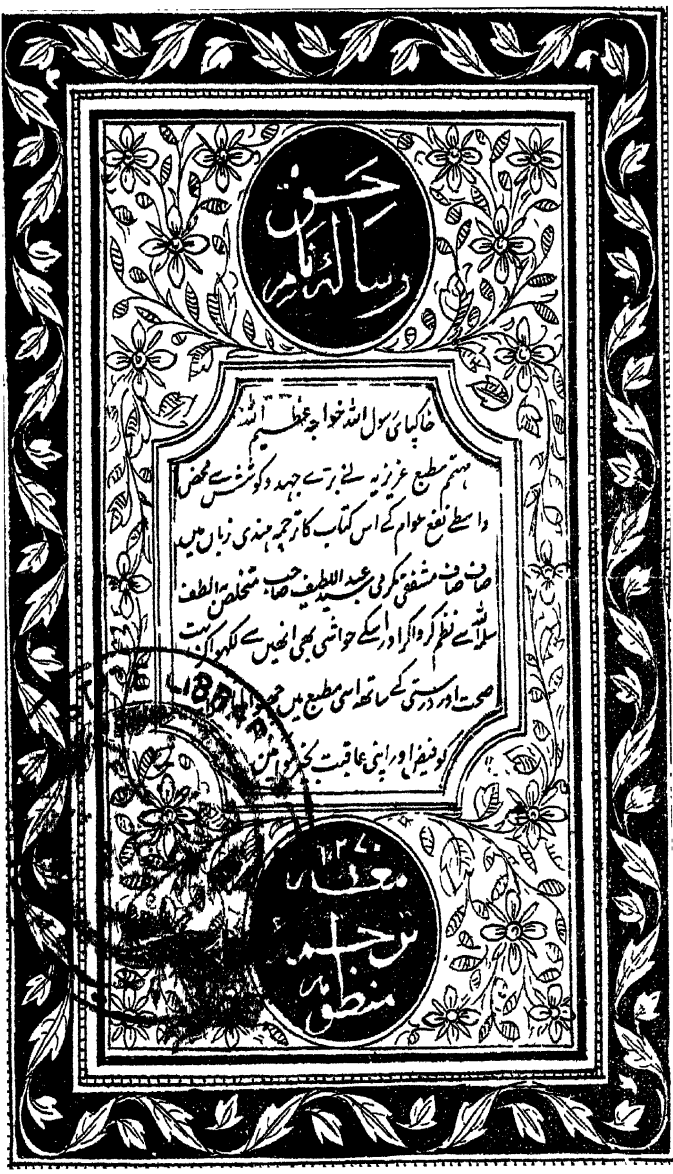 رسالہ نام حق
خاکپای رسول اللہ خواجہ عظیم اللہ
مہتمم مطبع عزیزیہ نے بڑے جہد و کوشش سے محض
واسطے نفع عوام کے اس کتاب کا ترجمہ ہندی زبان میں
صاف صاف مشفقی کرمی سید عبد اللطیف صاحب متخلص لطف
سلمہ اللہ سے نظم کرواکر اور اسکے حواشی بھی انھیں سے لکھواکر نہایت
صحت اور درستی کے ساتھ اسی مطبع میں
اور اپنی عاقبت
۱۲۷۰
معہ
ترجمہ
منظومہ
LIBRARY